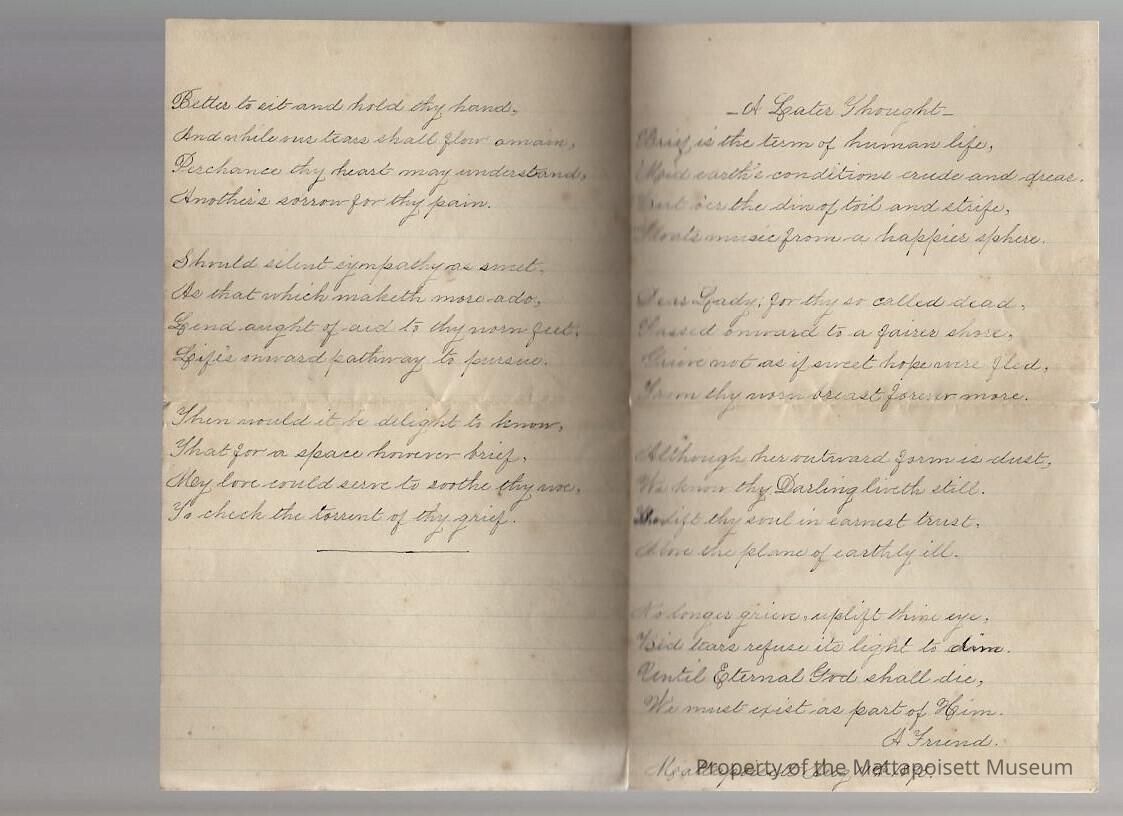 Better to sit and hold thy hand,
And while our tears shall flow amain,
Perchance thy heart may understand,
Another's sorrow for thy pain.
Should silent sympathy as sweet,
As that which maketh more ado,
Lend aught of aid to thy worn feet,
Life's onward pathway to pursue.
Then would it be delight to know,
That for a space however brief,
My love could serve to soothe thy woe,
To check the torrent of thy grief.
A Later Thought
Brief is the term of human life,
earth's conditions crude and drear.
But o'er the din of toil and strife,
Floats music from a happier sphere.
Dear Lady; for thy so called dead,
Passed onward to a fairer shore,
Grieve not as if sweet hope were fled,
From thy worn breast forever more.
Although her outward form is dust,
We know thy Darling liveth still.
lift thy soul in earnest trust,
Above the plane of earthly ill.
No longer grieve, uplift thine eye,
Bid tears refuse its light to dim.
Until Eternal God shall die,
We must exist as part of Him.
A Friend.
Property of the Mattapoisett Museum